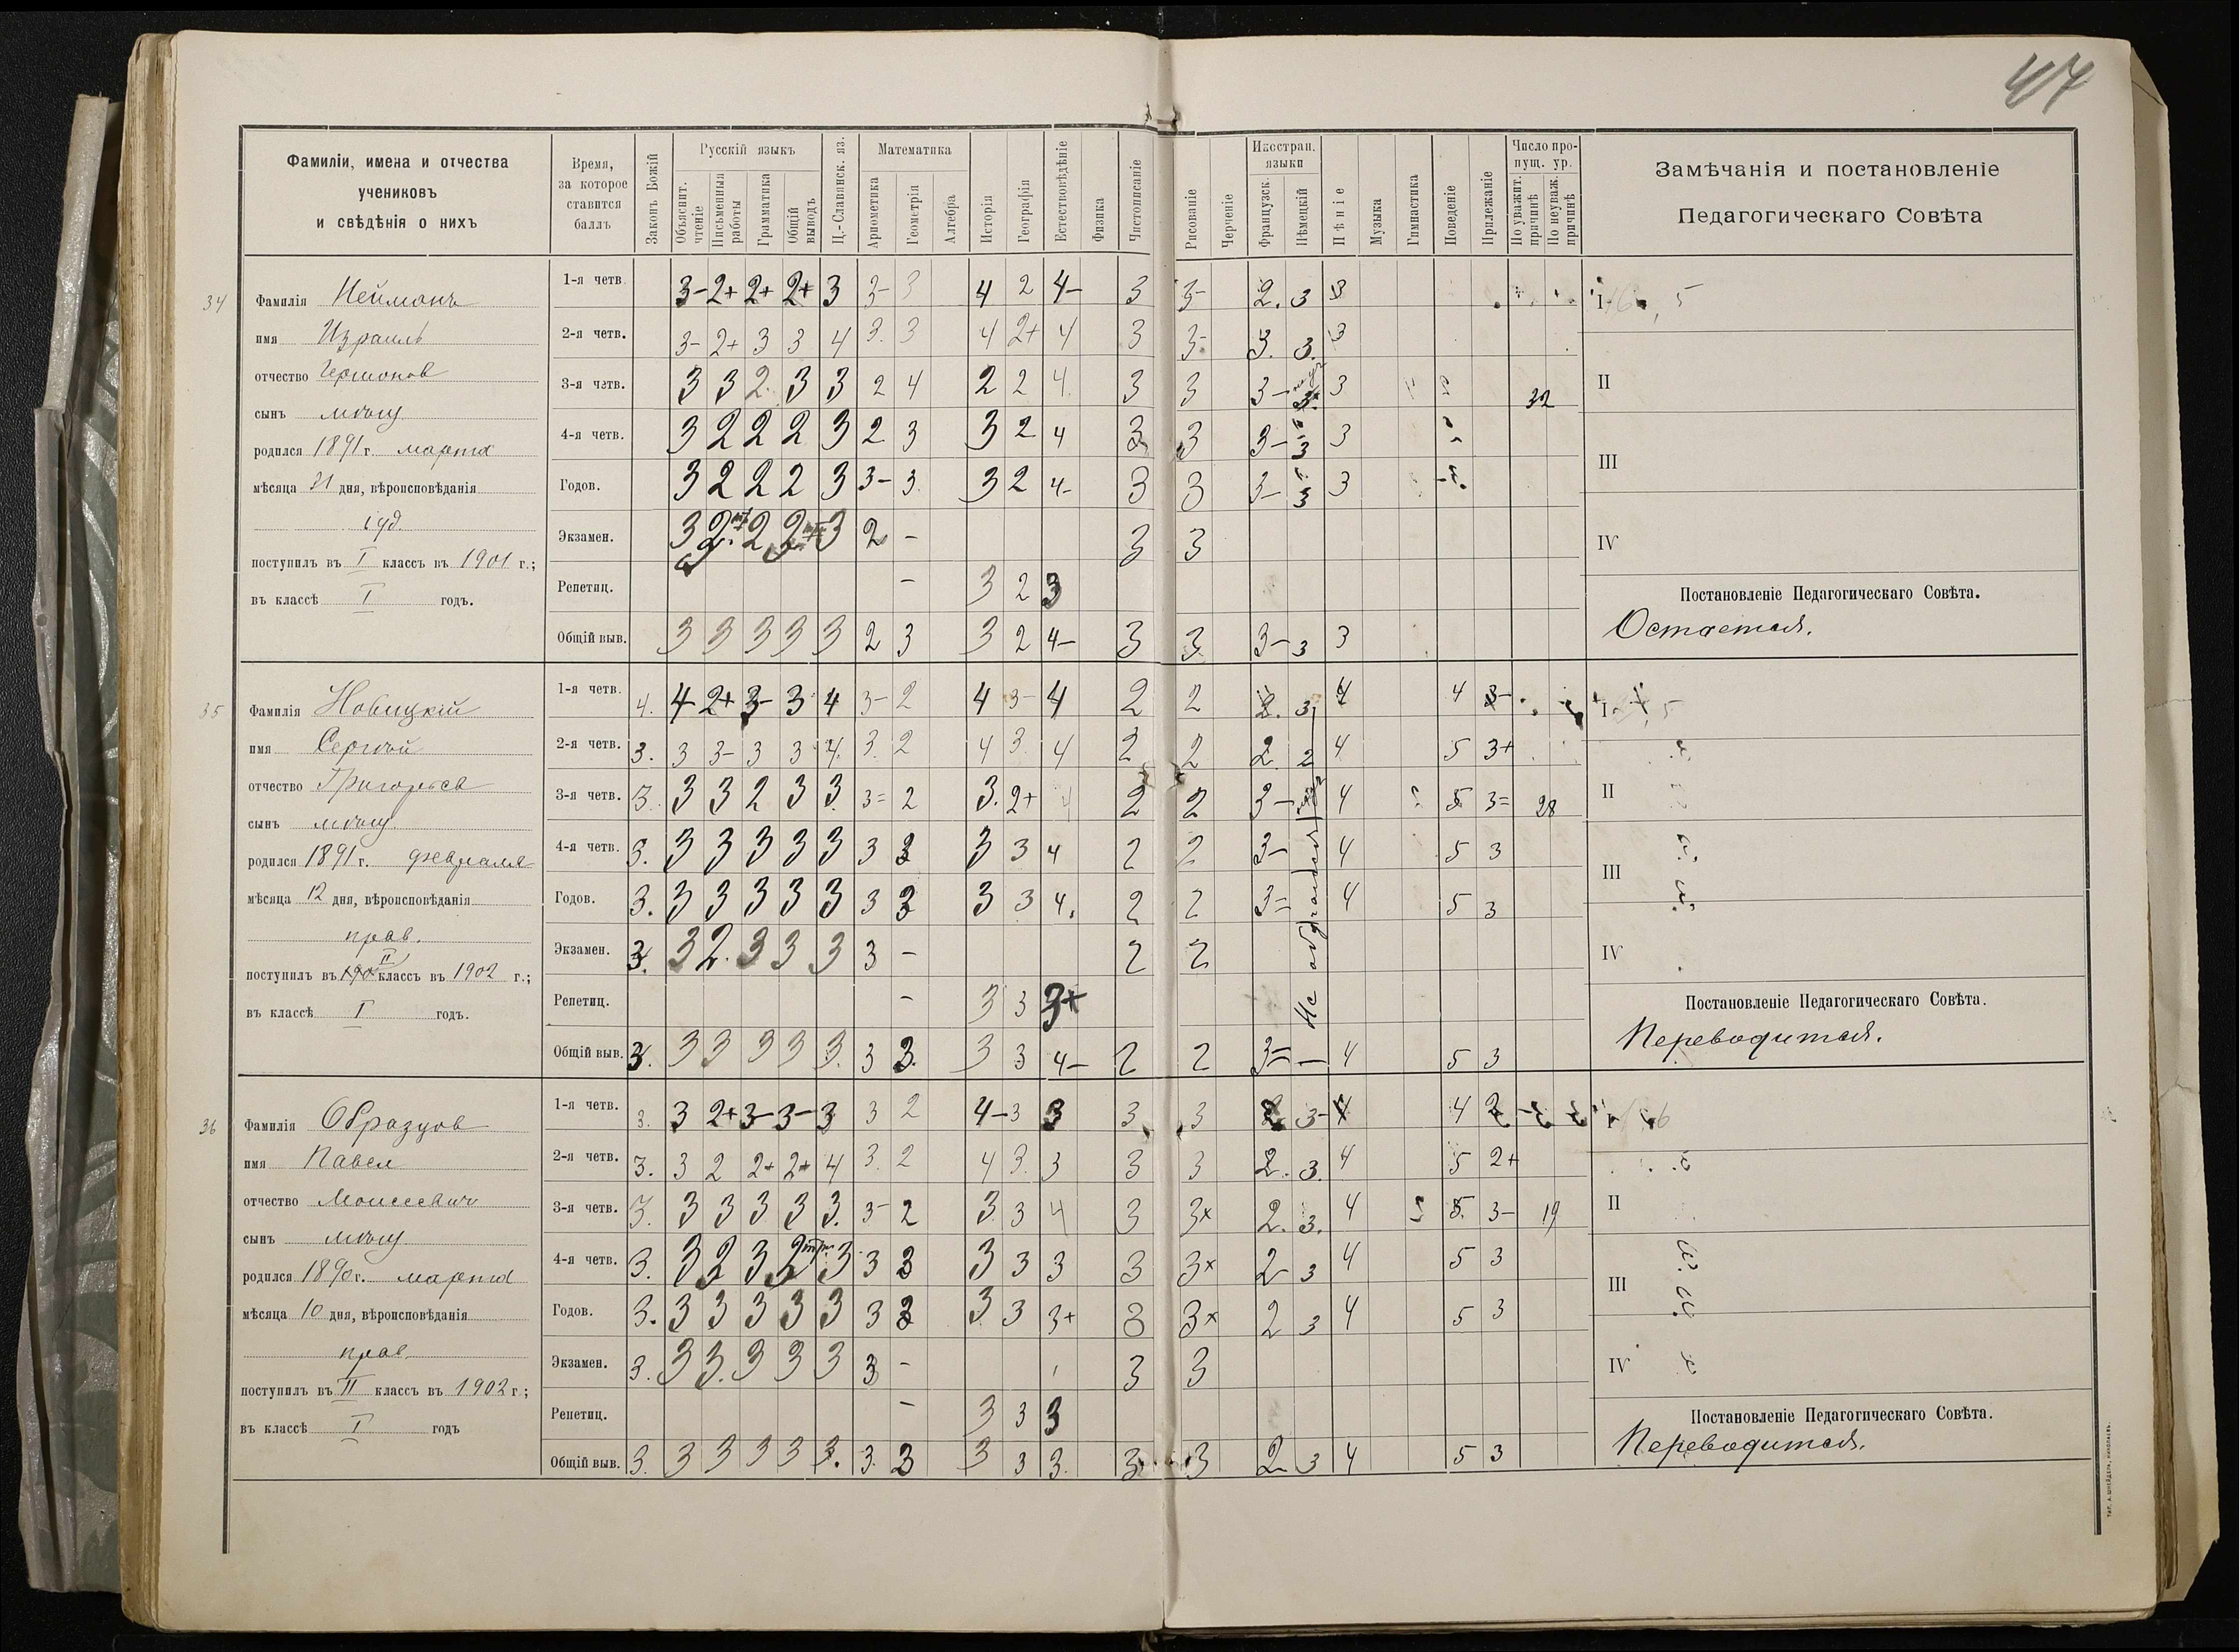 47
Фамиліи, имена и отчества
учениковъ
и свѣдѣнія о нихъ
Время,
за которое
ставится
баллъ
Законъ Божій
Русскій языкъ
Объяснит. чтеніе
Письменныя работы
Грамматика
Общій выводъ
Ц.-Славянск. яз.
Математика
Ариѳметика
Геометрія
Алгебра
Исторія
Географія
Естествовѣдѣніе
Физика
Чистописаніе
Рисованіе
Черченіе
Иностран. языки
Французск.
Нѣмецкій
Пѣніе
Музыка
Гимнастика
Поведеніе
Прилежаніе
Число пропущ. ур.
По уважит. причинѣ
По неуваж. причинѣ
Замѣчанія и постановленіе
Педагогическаго Совѣта
34
Фамилія Нейманъ
имя Израиль
отчество
сынъ мѣщ
родился 1891 г. марта
мѣсяца 21 дня, вѣроисповѣданія
іуд.
поступилъ въ I классъ въ 1901 г.;
въ классѣ I годъ.
1-я четв. 3- 2+ 2+ 2+ 3 3- 3 4 2 4- 3 3- 2. 3 3 I
2-я четв. 3- 2+ 3 3 4 3. 3 4 2+ 4 3 3- 3. 3. 3
3-я четв. 3 3 2 3 3 2 4 2 2 4 3 3 3- 3 32 II
4-я четв. 3 2 2 2 3 2 3 3 2 4 3 3 3- 3 3
Годов. 3 2 2 2 3 3- 3 3 2 4- 3 3 3- 3 3 III
Экзамен. 3 2 2 2 3 2 - 3 3 IV
Репетиц. - 3 2 3
Общій выв. 3 3 3 3 3 2 3 3 2 4- 3 3 3- 3 3
Постановленіе Педагогическаго Совѣта.
Остается.
35
Фамилія Новицкій
имя Сергѣй
отчество Григорьев
сынъ мѣщ.
родился 1891 г. февраля
мѣсяца 12 дня, вѣроисповѣданія
прав.
поступилъ въ II классъ въ 1902 г.;
въ классѣ I годъ.
1-я четв. 4. 4- 2+ 3- 3 4 3- 2 4 3- 4 2 2 2. 3 4 4 3- I
2-я четв. 3. 3 3- 3 3 4. 3. 2 4 3 4 2 2 2 2 4 5 3+
3-я четв. 3. 3 3 2 3 3. 3= 2 3. 2+ 4 2 2 3- 4 5 3= 28 II
4-я четв. 3. 3 3 3 3 3 3 3 3 3 4 2 2 3- 4 5 3
Годов. 3. 3 3 3 3 3 3 3 3 3 4. 2 2 3= 4 5 3 III
Экзамен. 3. 3 2. 3 3 3 3 - 2 2 IV
Репетиц. - 3 3 3+
Общій выв. 3. 3 3 3 3 3. 3 3. 3 3 4- 2 2 3= - 4 5 3
Не обучается
Постановленіе Педагогическаго Совѣта.
Переводится.
36
Фамилія Образцов
имя Павел
отчество Моисеевич
сынъ мѣщ
родился 1890 г. марта
мѣсяца 10 дня, вѣроисповѣданія
прав.
поступилъ въ II классъ въ 1902 г.;
въ классѣ I годъ
1-я четв. 3. 3 2+ 3- 3- 3 3 2 4- 3 3 3 3 2 3- 4 4 2 I
2-я четв. 3. 3 2 2+ 2+ 4 3. 2 4 3. 3 3 3 2. 3. 4 5 2+
3-я четв. 3. 3 3 3 3 3. 3- 2 3 3 4 3 3× 2. 3. 4 5. 3- 19 II
4-я четв. 3. 3 2 3 2 3 3 3 3 3 3 3 3× 2 3 4 5 3
Годов. 3. 3 3 3 3 3 3 3 3 3 3+ 3 3× 2 3 4 5 3 III
Экзамен. 3. 3 3. 3 3 3 3 - 3 3 IV
Репетиц. - 3 3 3
Общій выв. 3. 3 3 3 3 3. 3. 3 3 3 3. 3 3 2 3 4 5 3
Постановленіе Педагогическаго Совѣта.
Переводится.
ТИП. А. ШНЕЙДЕРА, НИКОЛАЕВЪ.